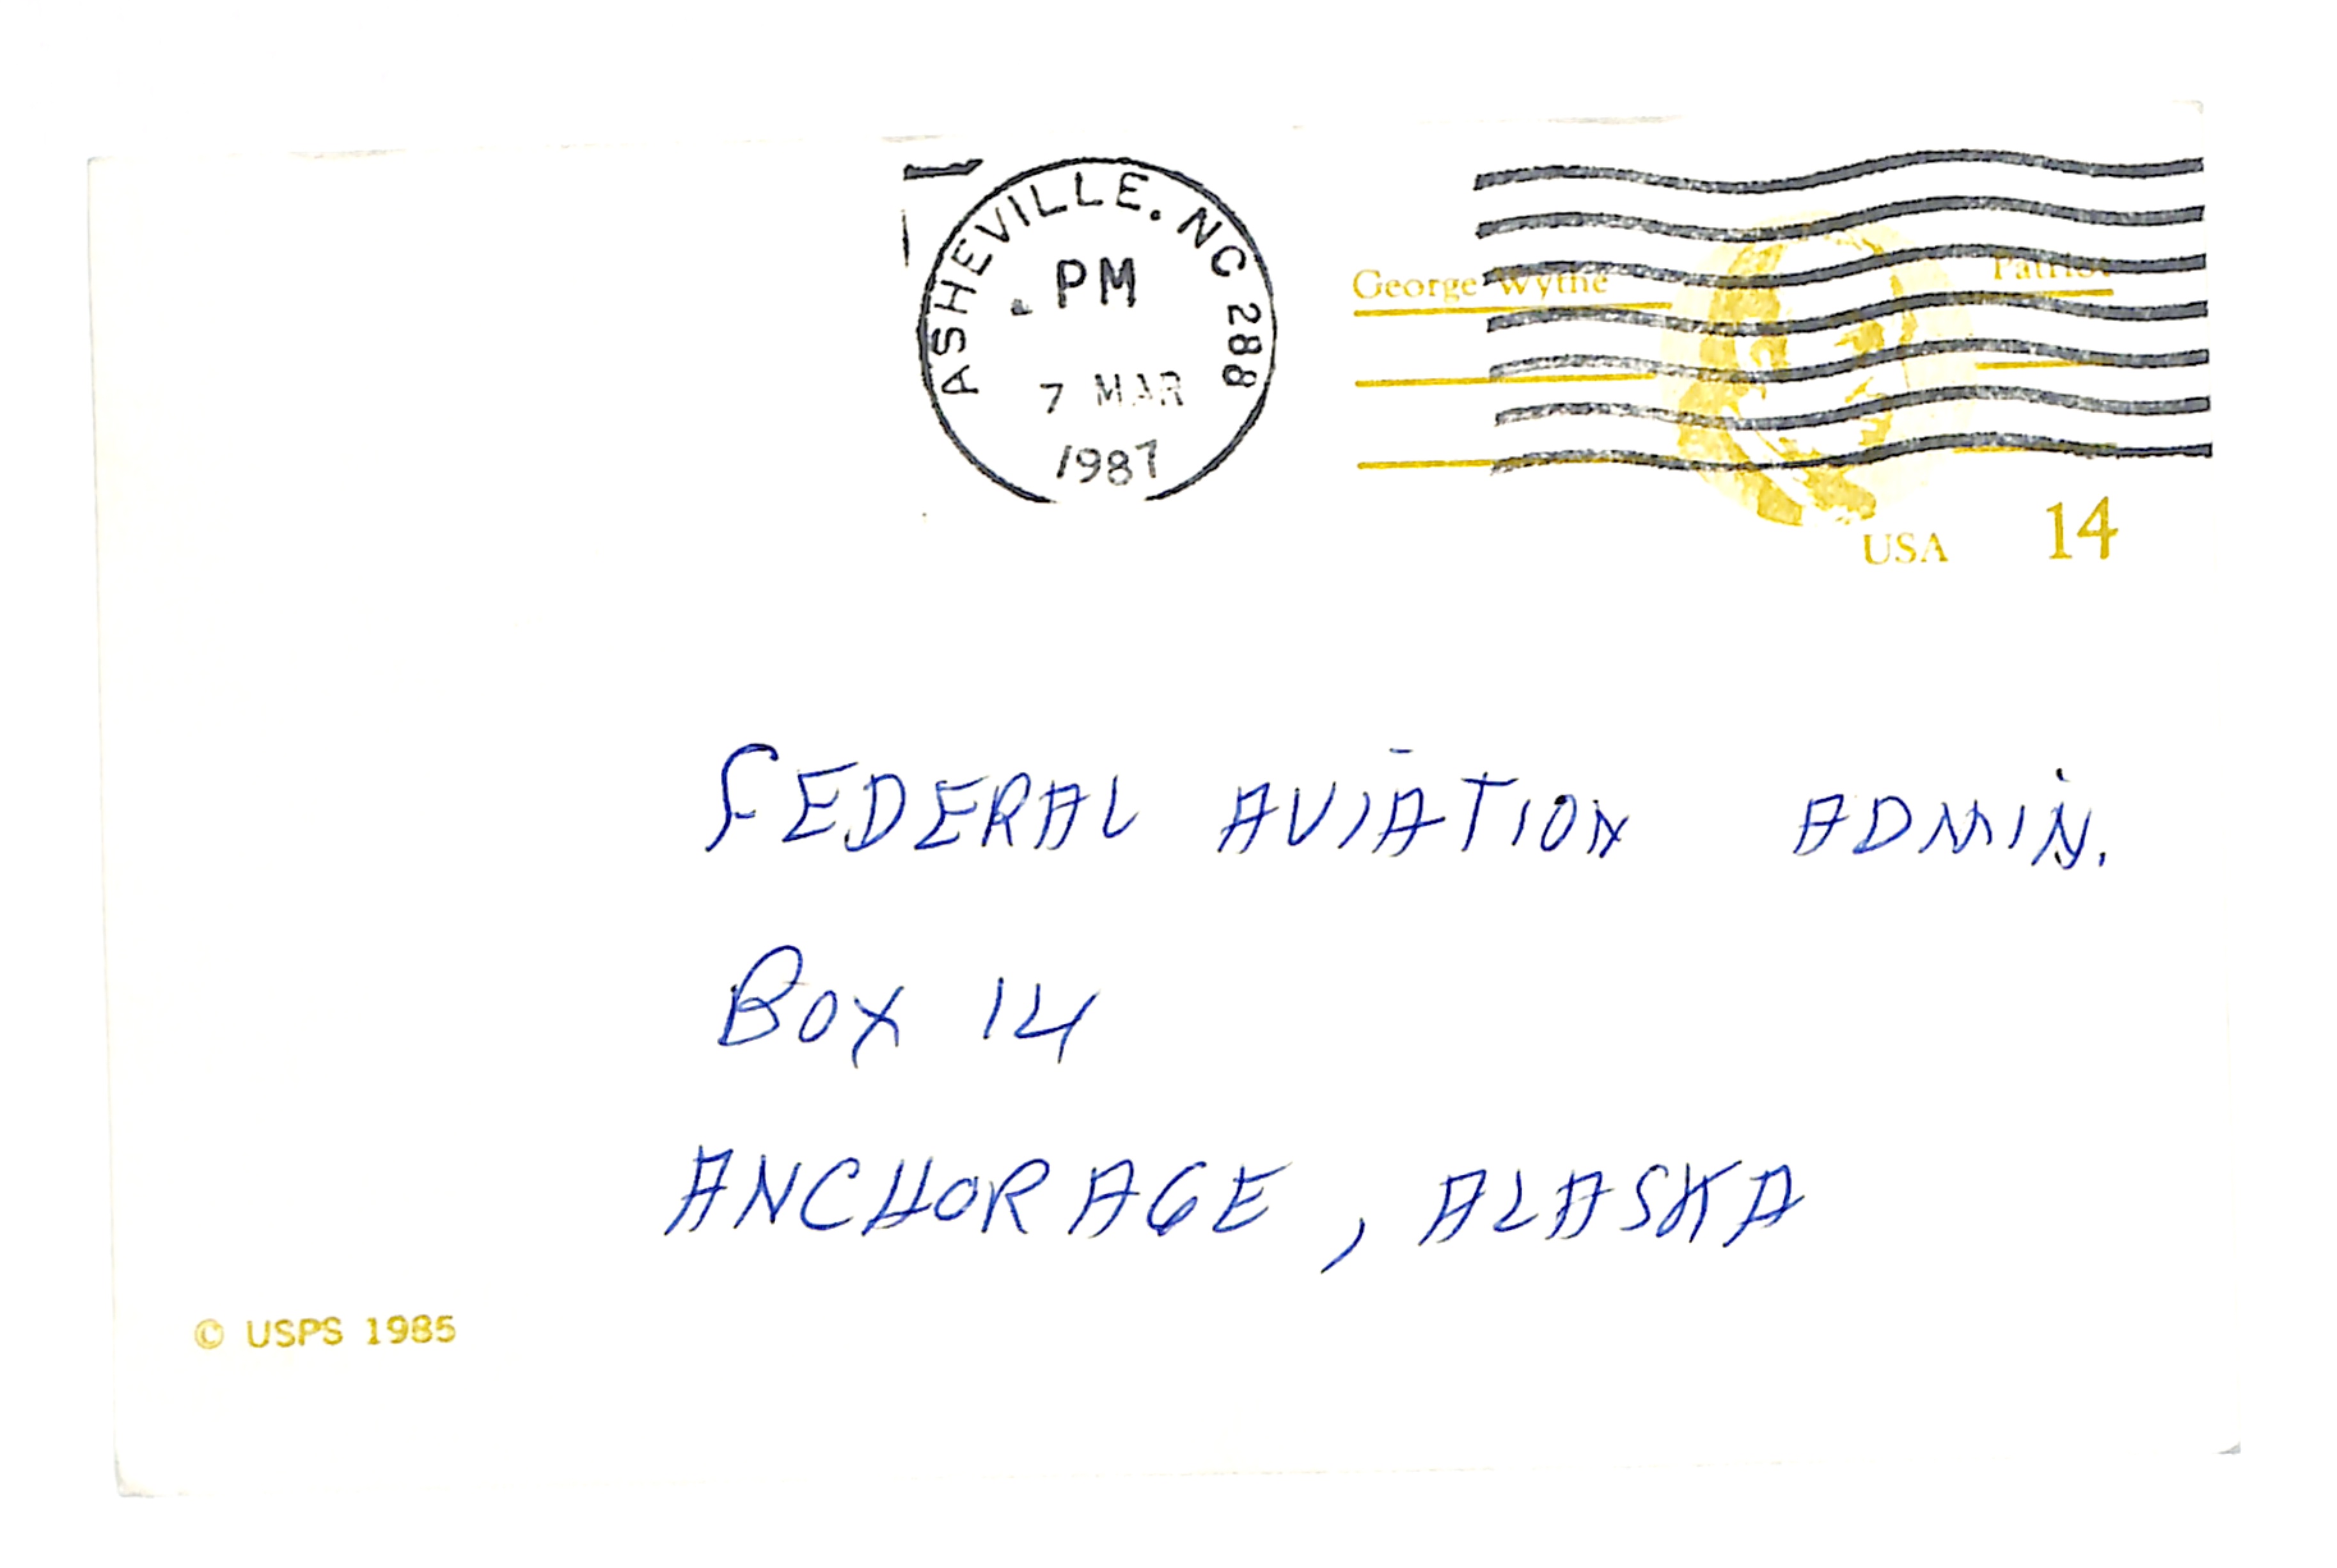 ASHEVILLE. NC 288
PM
7 MAR
1987
George Wythe Patriot
USA 14
FEDERAL AVIATION ADMIN.
BOX 14
ANCHORAGE, ALASKA
© USPS 1985